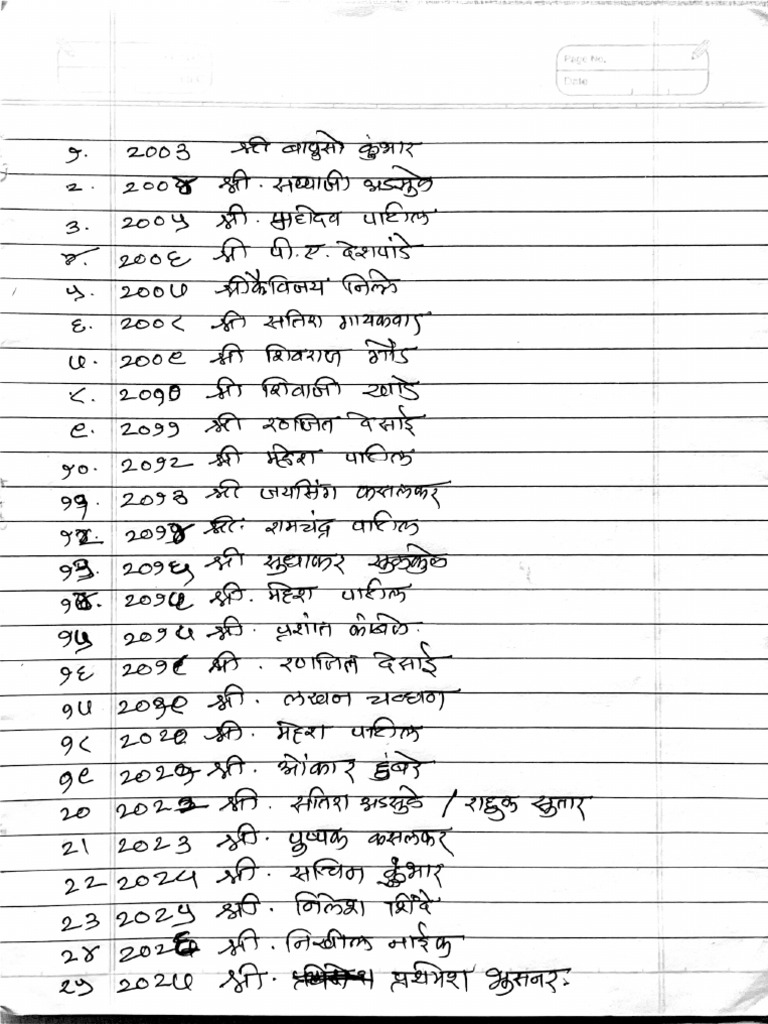 Page No.
Date
१. 2003 श्री बापुसो कुंभार
२. 200४ श्री. सयाजी अडसुळे
३. 200५ श्री. महादेव पाटील
४. 200६ श्री पी. ए. देशपांडे
५. 200७ श्री विजय
६. 200८ श्री सतिश गायकवाड
७. 200९ श्री शिवराज गौड
८. 20१0 श्री शिवाजी खाडे
९. 20११ श्री रणजित देसाई
१०. 20१२ श्री महेश पाटील
११. 20१३ श्री जयसिंग कसलकर
१२. 20१४ श्री. रामचंद्र पाटील
१३. 20१५ श्री सुधाकर
१४. श्री. महेश पाटील
१५ 20१७ श्री. प्रशांत कांबळे.
१६ 20१८ श्री. रणजित देसाई
१७ 20१९ श्री. लखन चव्हाण
१८ श्री. महेश पाटील
१९ 20२१ श्री. ओंकार डुंबरे
२0 20२२ श्री. सतिश अडसुळे / राहुल सुतार
21 2023 श्री. पुष्पक कसलकर
22 2024 श्री. सचिन कुंभार
23 202५ श्री. निलेश शिंदे
2४ 202६ श्री. निखील नाईक
2५ 202७ श्री. प्रथमेश भुसनर.